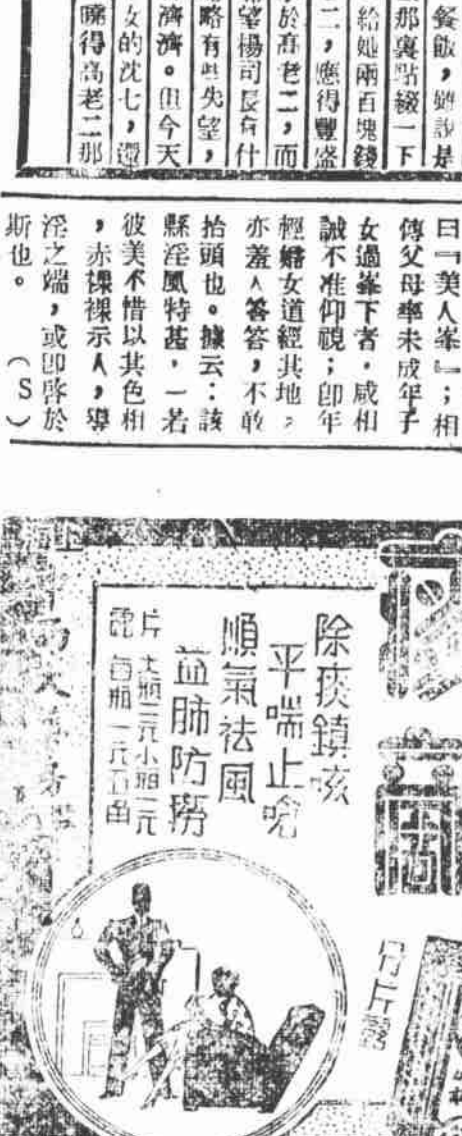 餐飯，雖說是
那裏點綴一下
給她兩百塊錢
二，應得豐盛
於高老二，而
望楊司長有什
略有些失望，
濟濟。但今天
女的沈七，還
曉得高老二那
曰『美人峯』；相
傳父母率未成年子
女過峯下者，咸相
誡不准仰視；即年
輕婦女道經其地，
亦羞人答答，不敢
抬頭也。據云：該
縣淫風特甚，一若
彼美不惜以其色相
，赤裸裸示人，導
淫之端，或即啓於
斯也。（S）
除痰鎮咳
平喘止嗆
順氣祛風
益肺防癆
片 大瓶三元小瓶一元
露 每瓶一元五角
片露
上